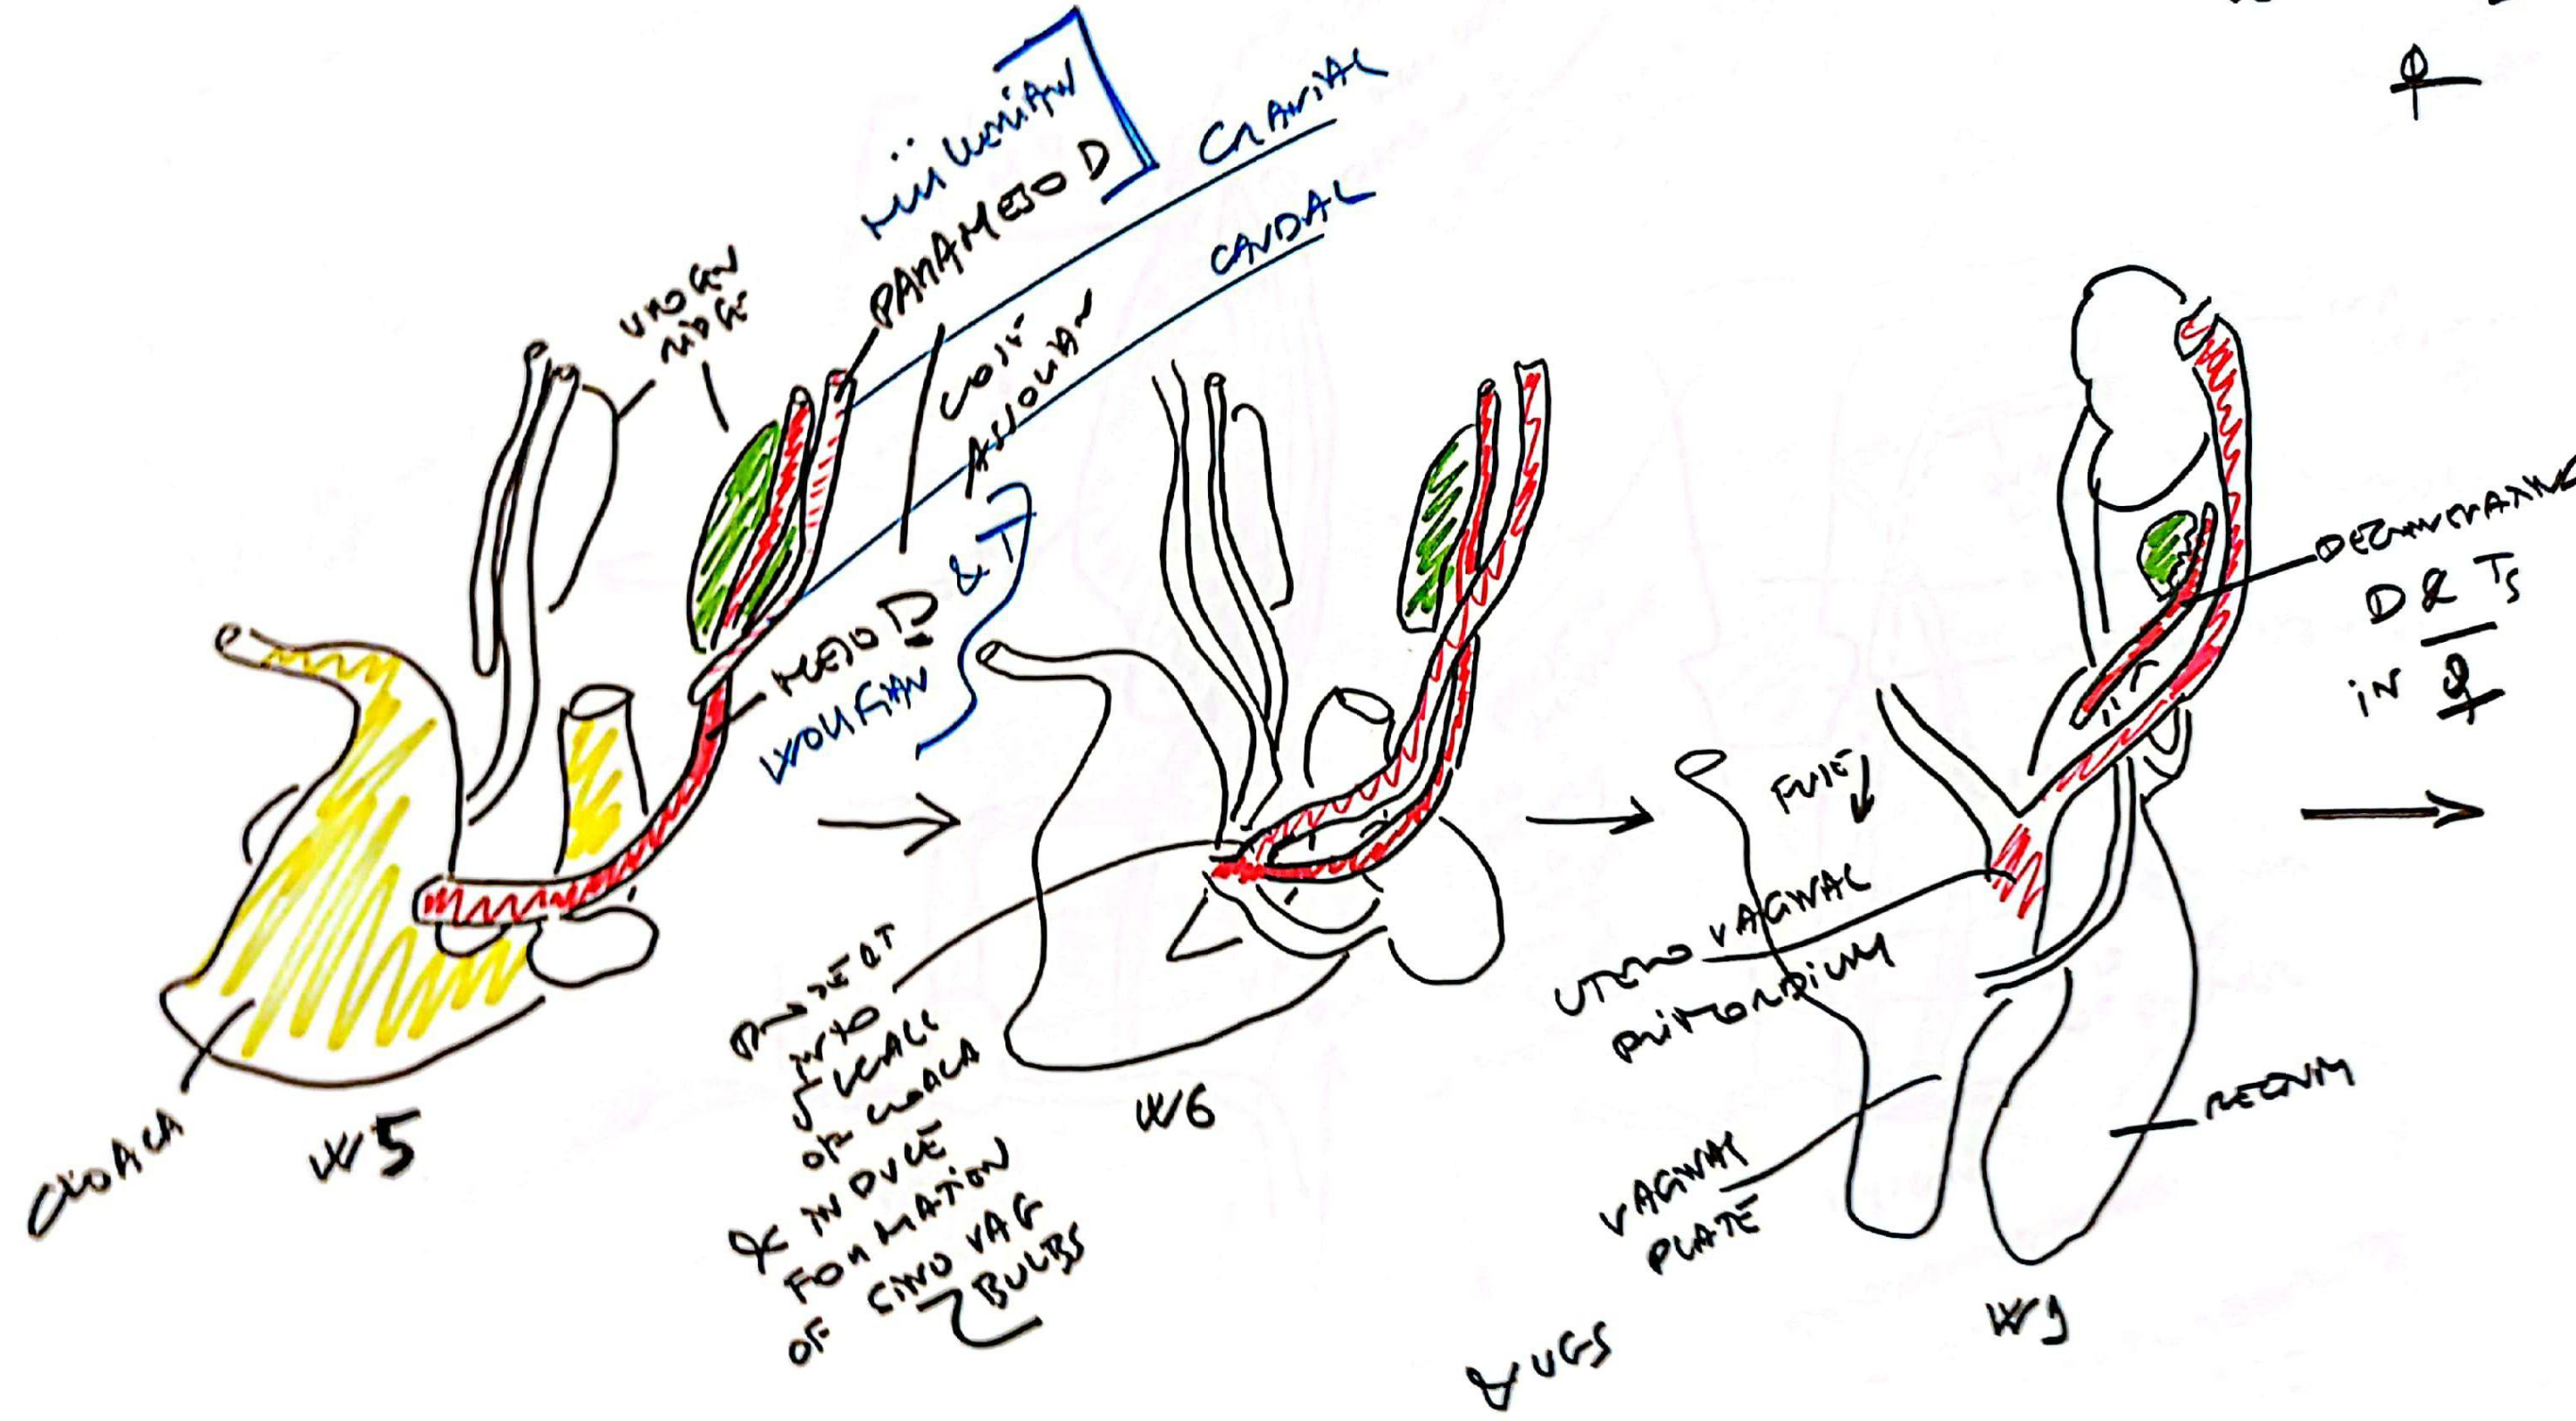 ♀
MÜLLERIAN
PARAMESO D
CRANIAL
CAUDAL
UROGEN
RIDGE
MESO D & T
WOLFFIAN
CLOACA
W5
PROJECT
INTO
WALL
OF CLOACA
& INDUCE
FORMATION
OF SINO VAG
BULBS
W6
FUSE ↓
UTERO VAGINAL
PRIMORDIUM
VAGINAL
PLATE
UGS
DEGENERATING
D & Ts
IN ♀
RECTUM
W9